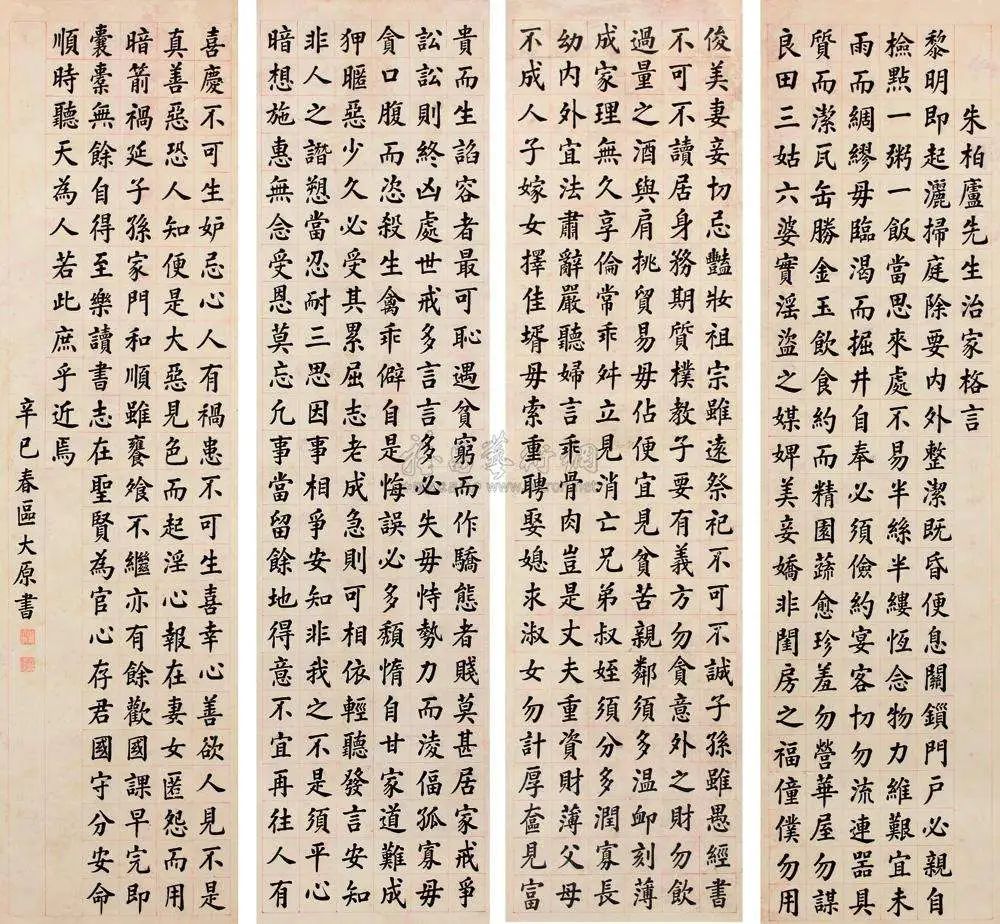 朱柏廬先生治家格言
黎明即起灑掃庭除要内外整潔既昏便息關鎖門戶必親自
檢點一粥一飯當思來處不易半絲半縷恆念物力維艱宜未
雨而綢繆毋臨渴而掘井自奉必須儉約宴客切勿流連器具
質而潔瓦缶勝金玉飲食約而精園蔬愈珍羞勿營華屋勿謀
良田三姑六婆實淫盜之媒婢美妾嬌非閨房之福僮僕勿用
俊美妻妾切忌豔妝祖宗雖遠祭祀不可不誠子孫雖愚經書
不可不讀居身務期質樸教子要有義方勿貪意外之財勿飲
過量之酒與肩挑貿易毋佔便宜見貧苦親鄰須多温卹刻薄
成家理無久享倫常乖舛立見消亡兄弟叔姪須分多潤寡長
幼内外宜法肅辭嚴聽婦言乖骨肉豈是丈夫重資財薄父母
不成人子嫁女擇佳壻毋索重聘娶媳求淑女勿計厚奩見富
貴而生諂容者最可恥遇貧窮而作驕態者賤莫甚居家戒爭
訟訟則終凶處世戒多言言多必失毋恃勢力而淩偪孤寡毋
貪口腹而恣殺生禽乖僻自是悔誤必多頹惰自甘家道難成
狎暱惡少久必受其累屈志老成急則可相依輕聽發言安知
非人之譖愬當忍耐三思因事相爭安知非我之不是須平心
暗想施惠無念受恩莫忘凡事當留餘地得意不宜再往人有
喜慶不可生妒忌心人有禍患不可生喜幸心善欲人見不是
真善惡恐人知便是大惡見色而起淫心報在妻女匿怨而用
暗箭禍延子孫家門和順雖饔飧不繼亦有餘歡國課早完即
囊橐無餘自得至樂讀書志在聖賢為官心存君國守分安命
順時聽天為人若此庶乎近焉
辛巳春區大原書